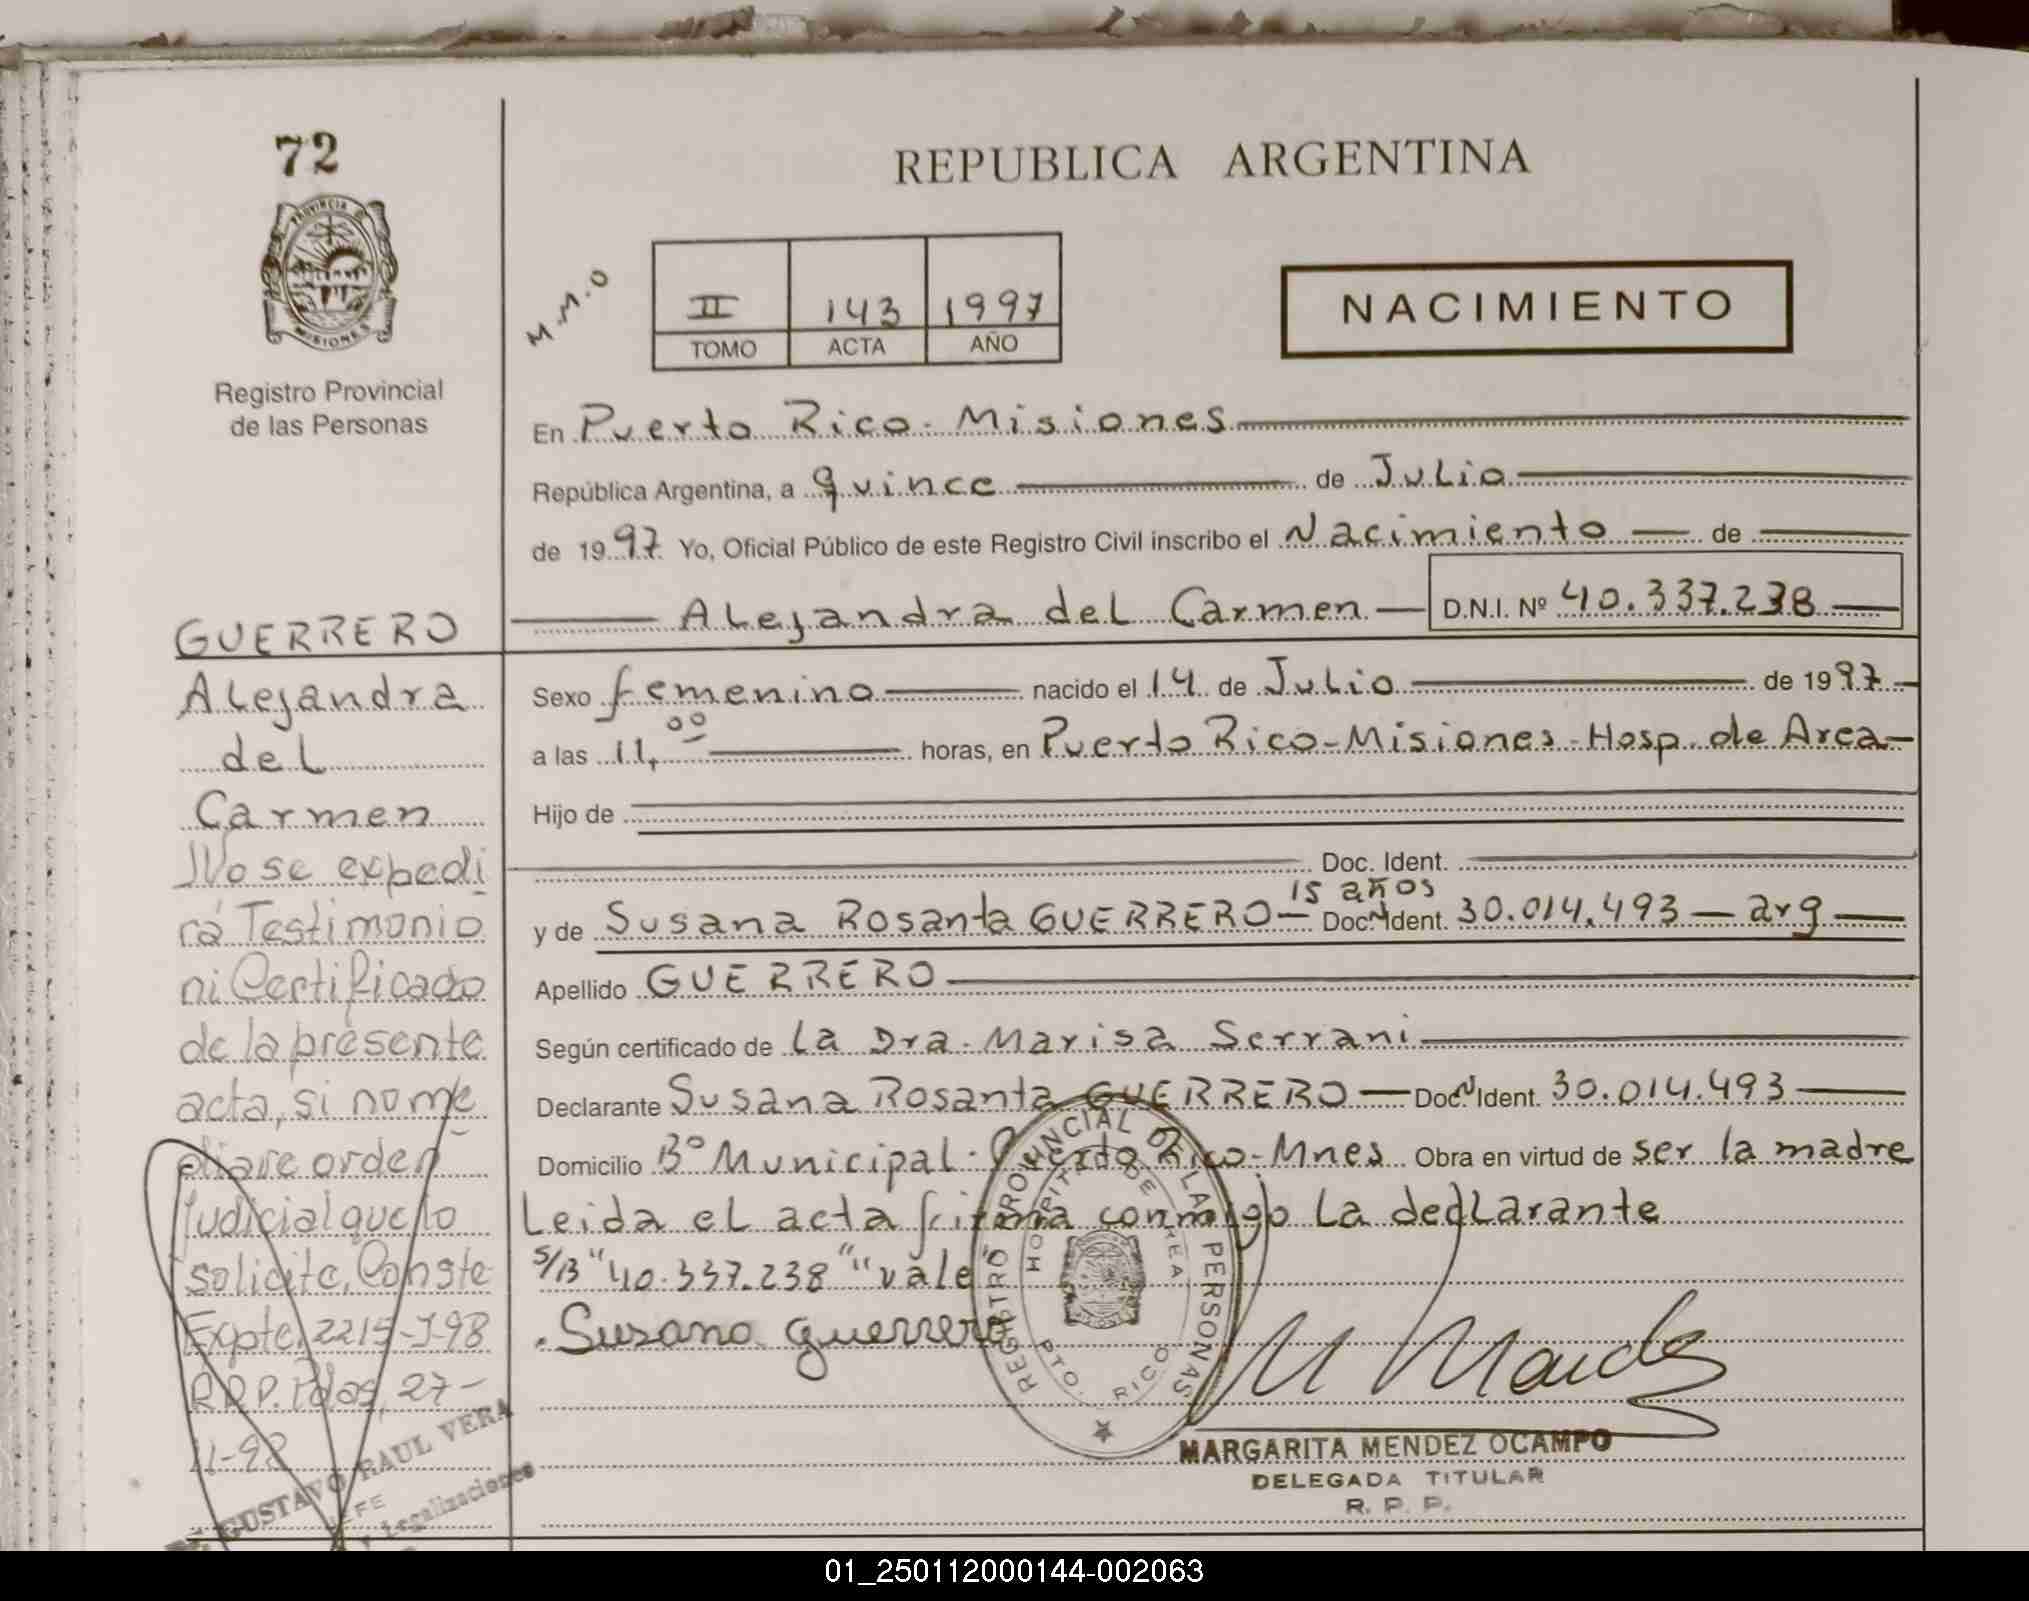 72
PROVINCIA DE
MISIONES
Registro Provincial
de las Personas
REPUBLICA ARGENTINA
M.M.O
II 143 1997
TOMO ACTA AÑO
NACIMIENTO
En Puerto Rico - Misiones
República Argentina, a quince de Julio
de 1997 Yo, Oficial Público de este Registro Civil inscribo el Nacimiento de
Alejandra del Carmen D.N.I. Nº 40.337.238
Sexo femenino nacido el 14 de Julio de 1997
a las 11,00 horas, en Puerto Rico - Misiones - Hosp. de Area
Hijo de
Doc. Ident.
15 años
y de Susana Rosanta GUERRERO Doc. N Ident. 30.014.493 arg
Apellido GUERRERO
Según certificado de La Dra. Marisa Serrani
Declarante Susana Rosanta GUERRERO Doc. N Ident. 30.014.493
Domicilio Bº Municipal - Puerto Rico - Mnes Obra en virtud de ser la madre
Leida el acta firma conmigo La declarante
s/B "40.337.238" "vale
Susana guerrero
REGISTRO PROVINCIAL DE LAS PERSONAS
HOSPITAL DE AREA
PTO. RICO
MARGARITA MENDEZ OCAMPO
DELEGADA TITULAR
R. P. P.
GUERRERO
Alejandra
del
Carmen
No se expedi
rá Testimonio
ni Certificado
de la presente
acta, si no me
diare orden
judicial que lo
solicite, Conste
Expte. 2215-J-98
R.P.P. Pdas, 27-
11-98
GUSTAVO RAUL VERA
JEFE
Legalizaciones
01_250112000144-002063